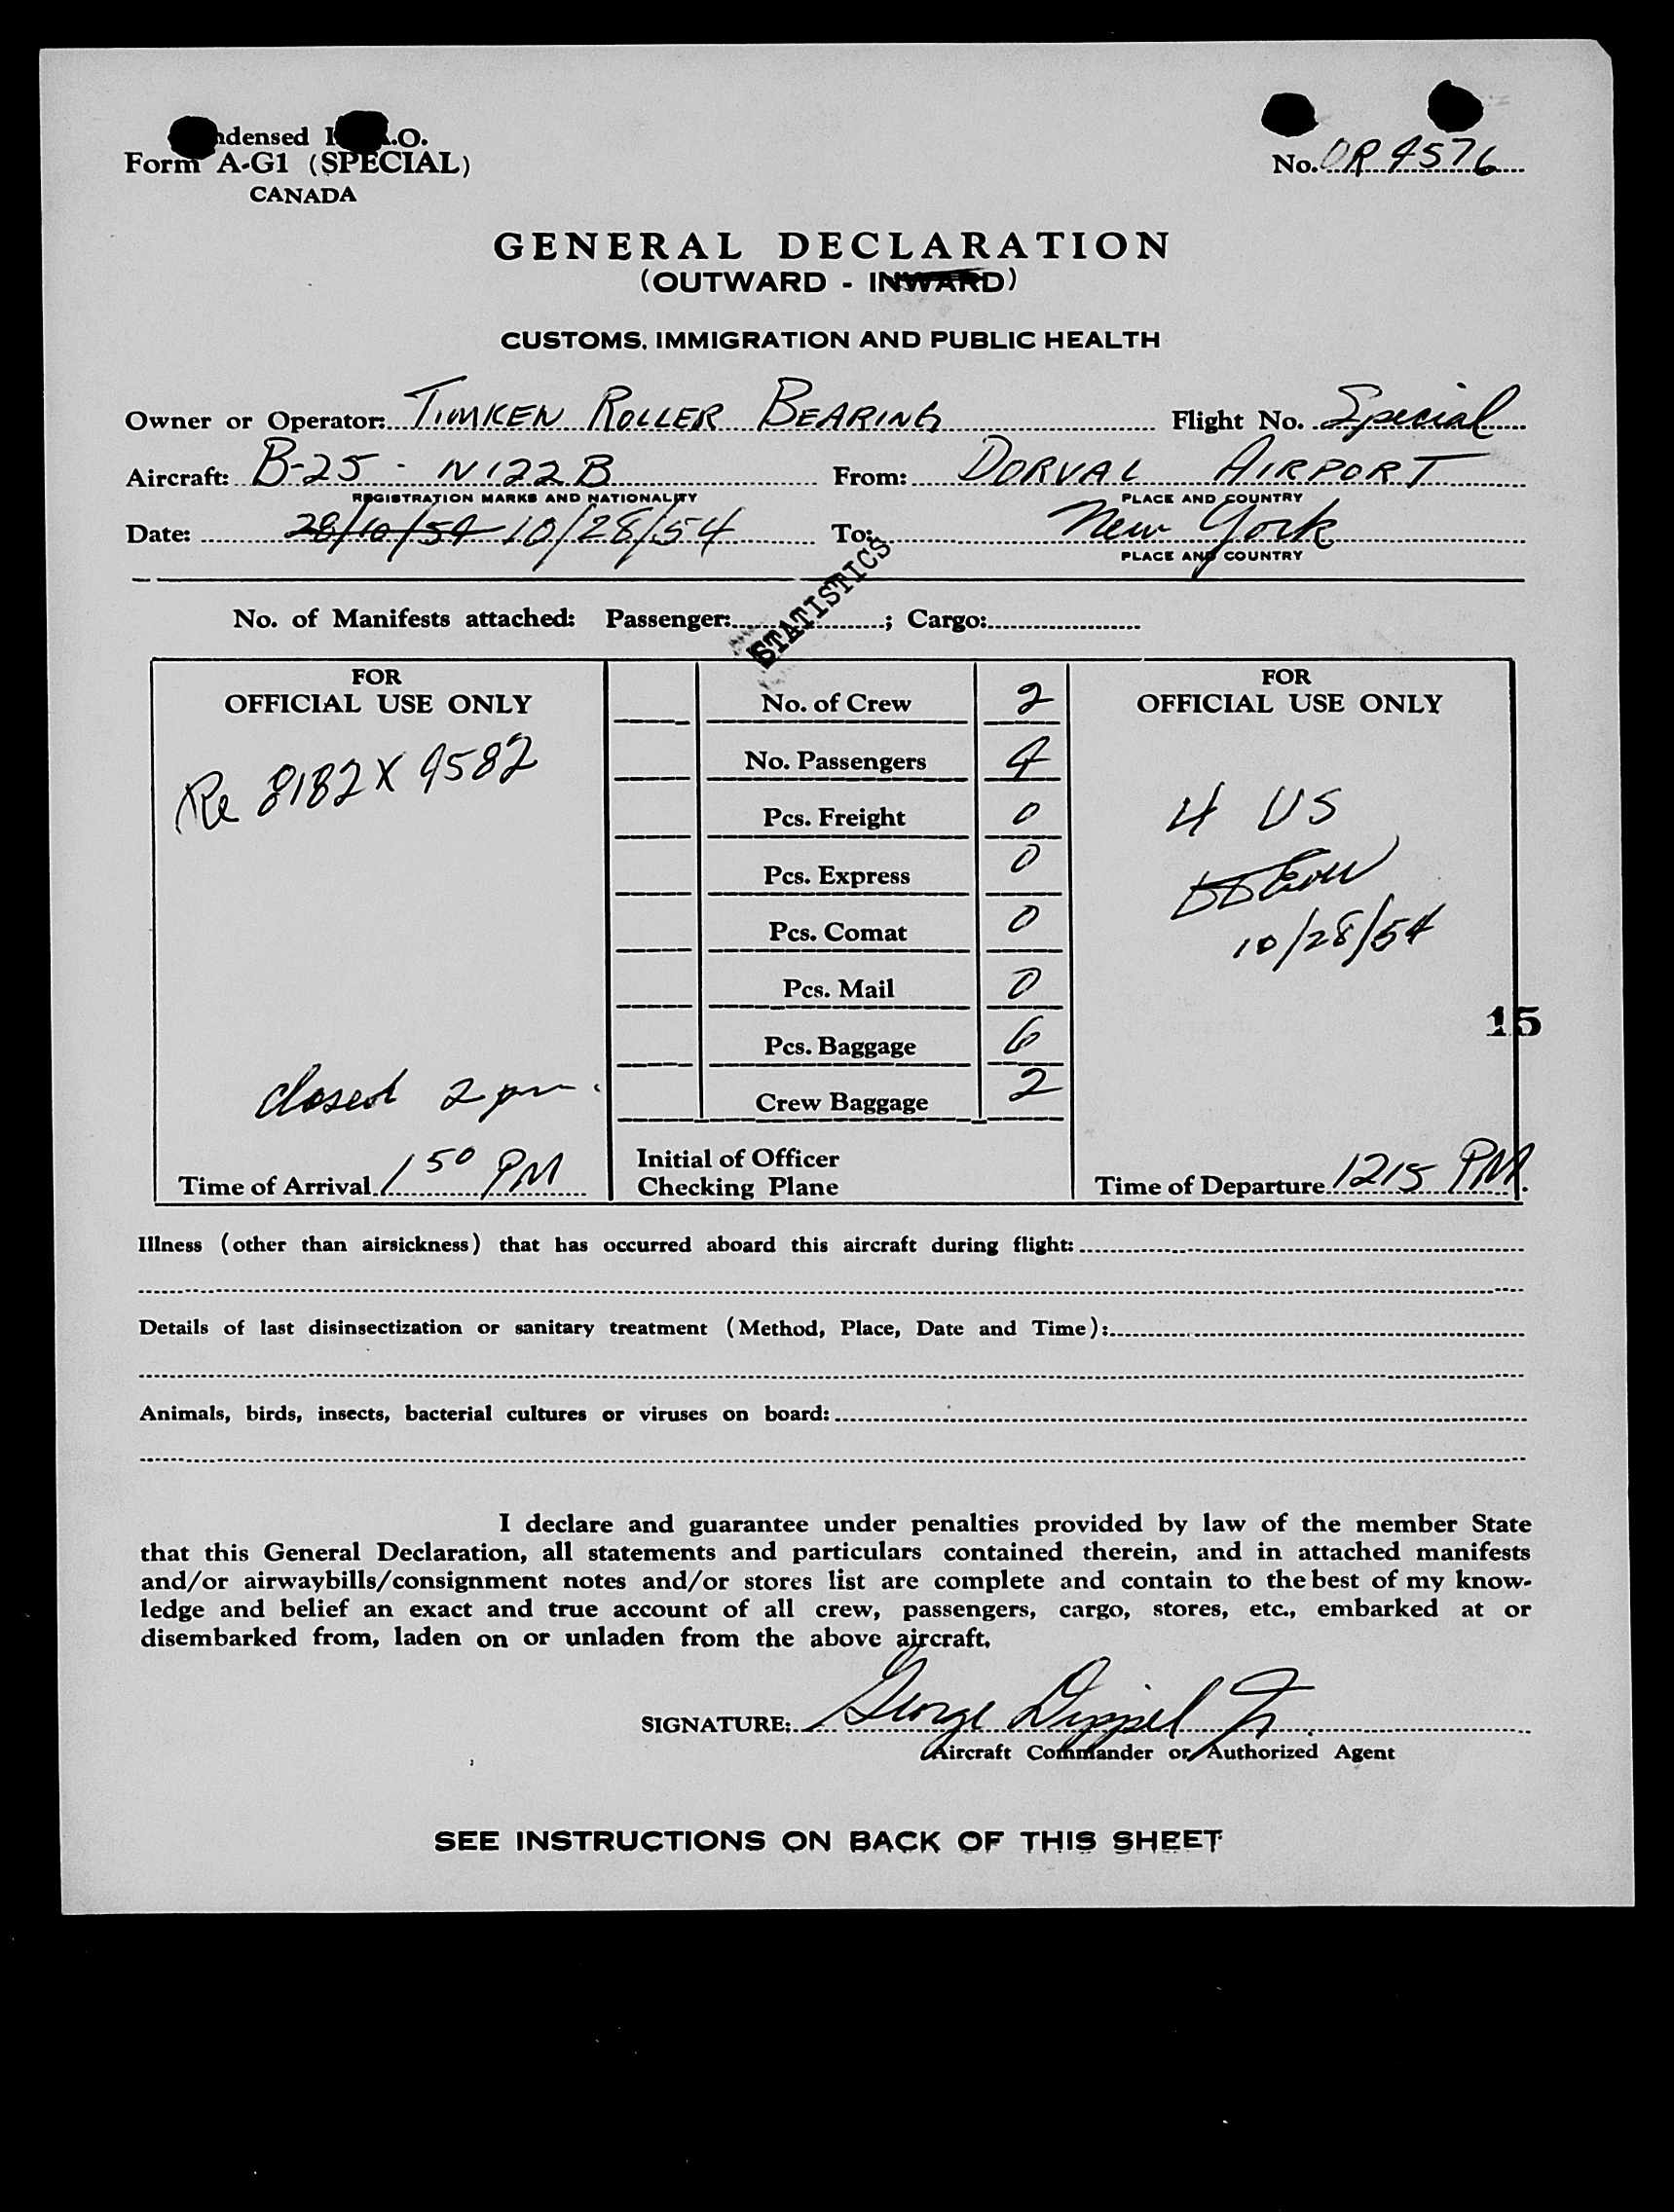 ndensed I .O.
Form A-G1 (SPECIAL)
CANADA
No. OR 4576
GENERAL DECLARATION
(OUTWARD - INWARD)
CUSTOMS, IMMIGRATION AND PUBLIC HEALTH
Owner or Operator: TIMKEN ROLLER BEARING Flight No. Special
Aircraft: B-25 - N122B From: DORVAL AIRPORT
REGISTRATION MARKS AND NATIONALITY PLACE AND COUNTRY
Date: 28/10/54 10/28/54 To: New York
PLACE AND COUNTRY
STATISTICS
No. of Manifests attached: Passenger: ; Cargo:
FOR
OFFICIAL USE ONLY
Re 8182 X 9582
closed 2 pm.
Time of Arrival 1 50 PM
No. of Crew 2
No. Passengers 4
Pcs. Freight 0
Pcs. Express 0
Pcs. Comat 0
Pcs. Mail 0
Pcs. Baggage 6
Crew Baggage 2
Initial of Officer
Checking Plane
FOR
OFFICIAL USE ONLY
4 US
10/28/54
15
Time of Departure 1215 PM.
Illness (other than airsickness) that has occurred aboard this aircraft during flight:
Details of last disinsectization or sanitary treatment (Method, Place, Date and Time):
Animals, birds, insects, bacterial cultures or viruses on board:
I declare and guarantee under penalties provided by law of the member State
that this General Declaration, all statements and particulars contained therein, and in attached manifests
and/or airwaybills/consignment notes and/or stores list are complete and contain to the best of my know-
ledge and belief an exact and true account of all crew, passengers, cargo, stores, etc., embarked at or
disembarked from, laden on or unladen from the above aircraft.
SIGNATURE: George Dippel Jr.
Aircraft Commander or Authorized Agent
SEE INSTRUCTIONS ON BACK OF THIS SHEET